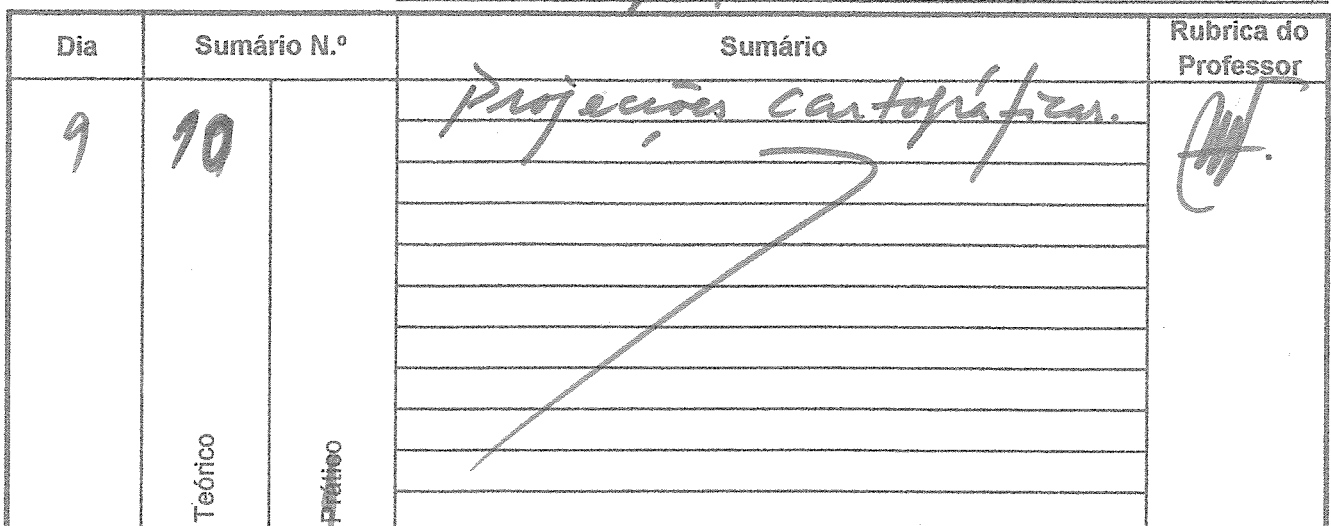 Dia Sumário N.º Sumário Rubrica do Professor
9 10 Projecções cartográficas.
Teórico Prático